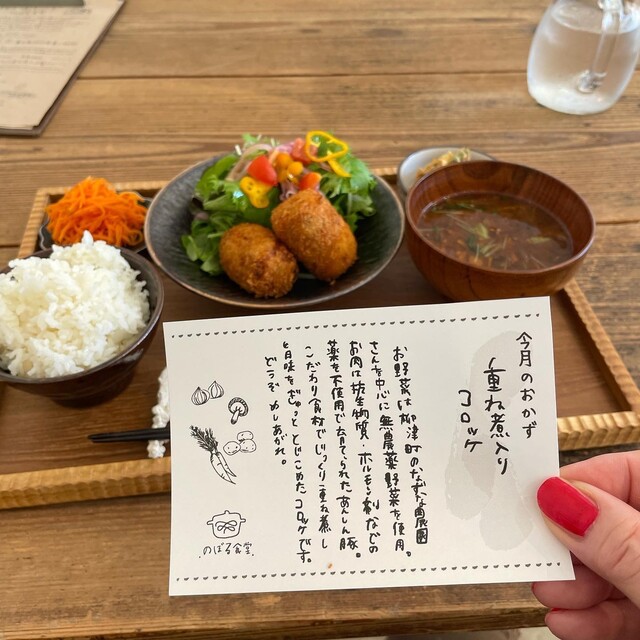 今月のおかず
重ね煮入り
コロッケ
お野菜は柳津町のなずな農園
さんを中心に無農薬野菜を使用。
お肉は抗生物質・ホルモン剤などの
薬を不使用で育てられたあんしん豚。
こだわり食材でじっくり重ね煮し
旨味をぎゅっととじこめたコロッケです。
どうぞめしあがれ。
のぼる食堂